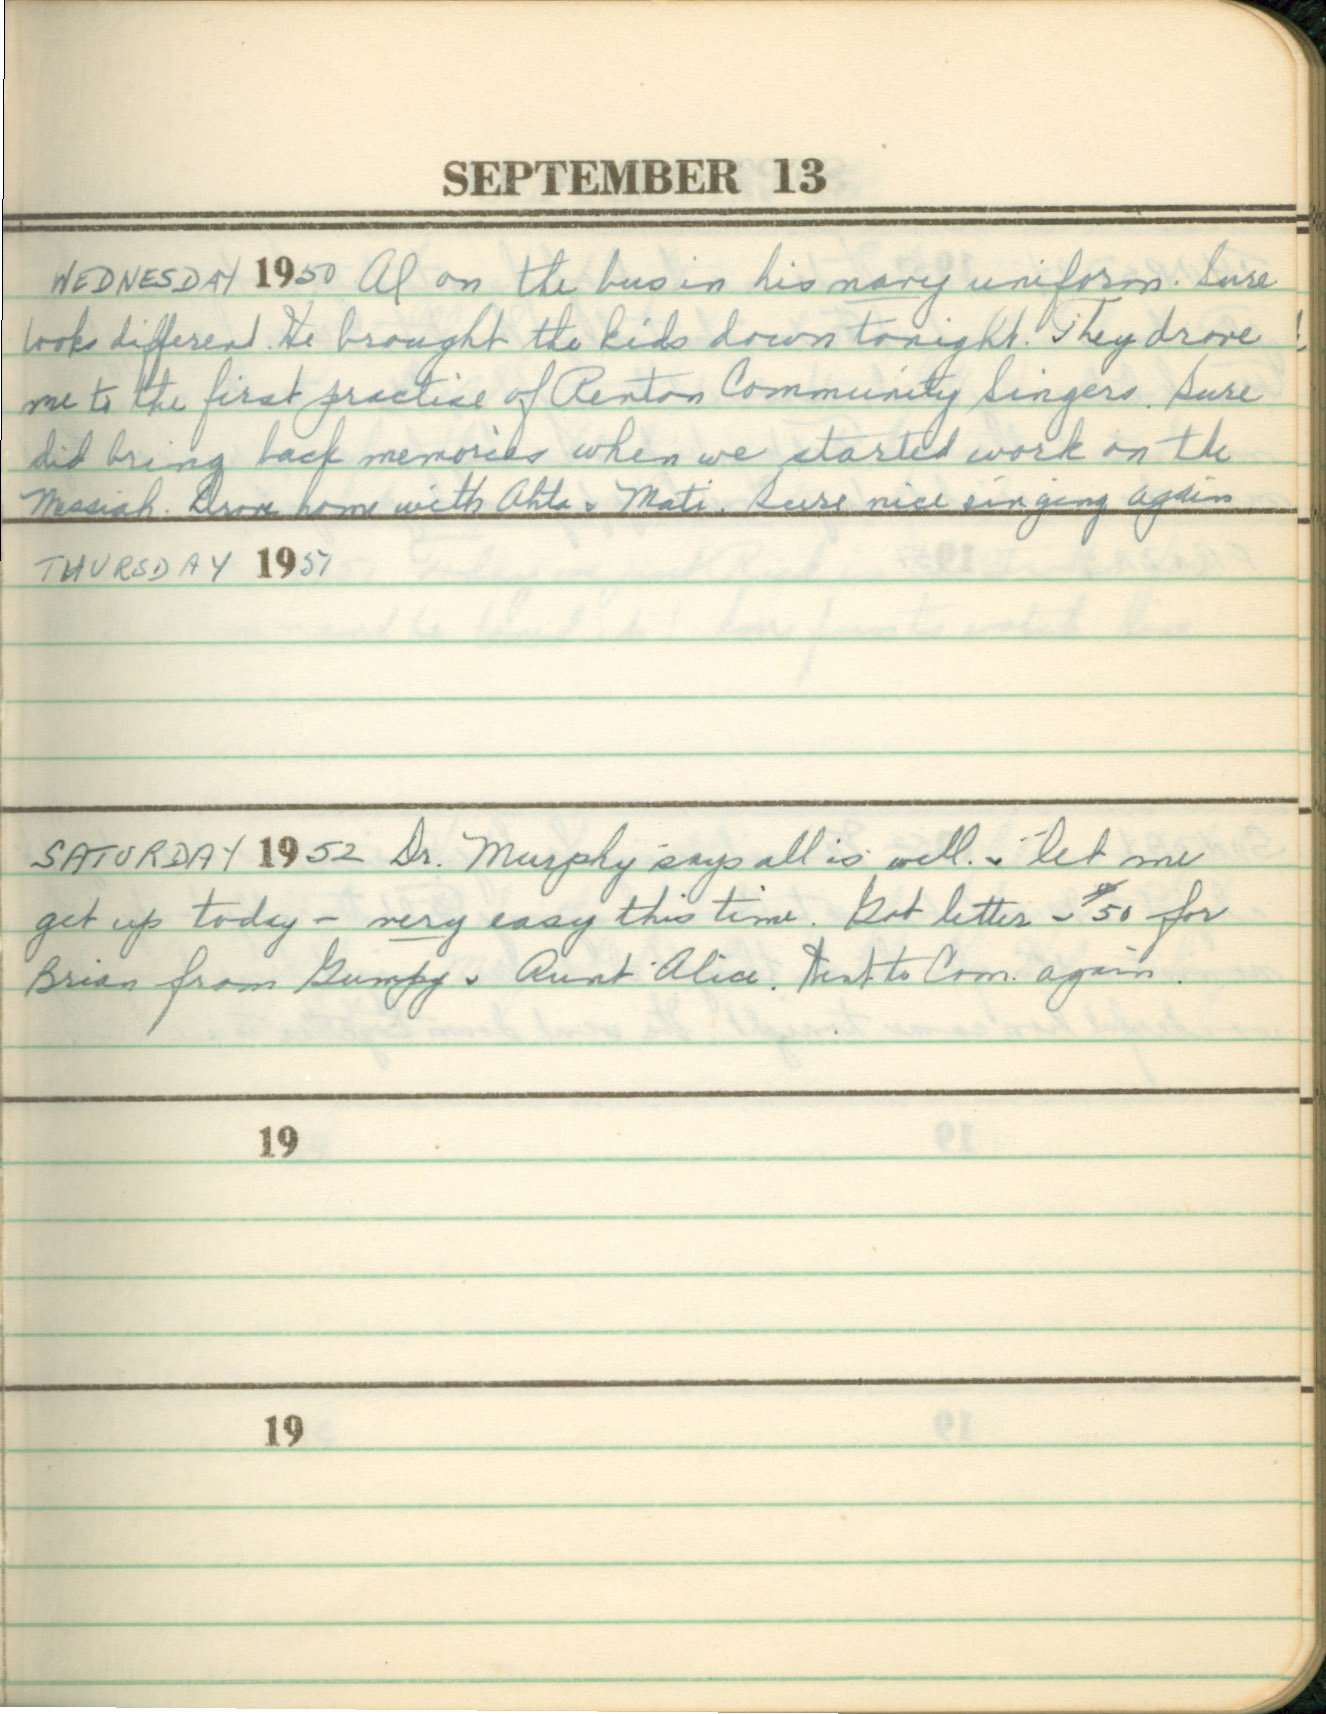 SEPTEMBER 13
WEDNESDAY 1950 Al on the bus in his navy uniform. Sure
looks different. He brought the kids down tonight. They drove
me to the first practise of Renton Community Singers. Sure
did bring back memories when we started work on the
Messiah. Drove home with Ahta & Mati. Sure nice singing again
THURSDAY 1951
SATURDAY 1952 Dr. Murphy says all is well. & let me
get up today - very easy this time. Got letter & $50 for
Brian from Gumpy & Aunt Alice. to Com. again.
19
19